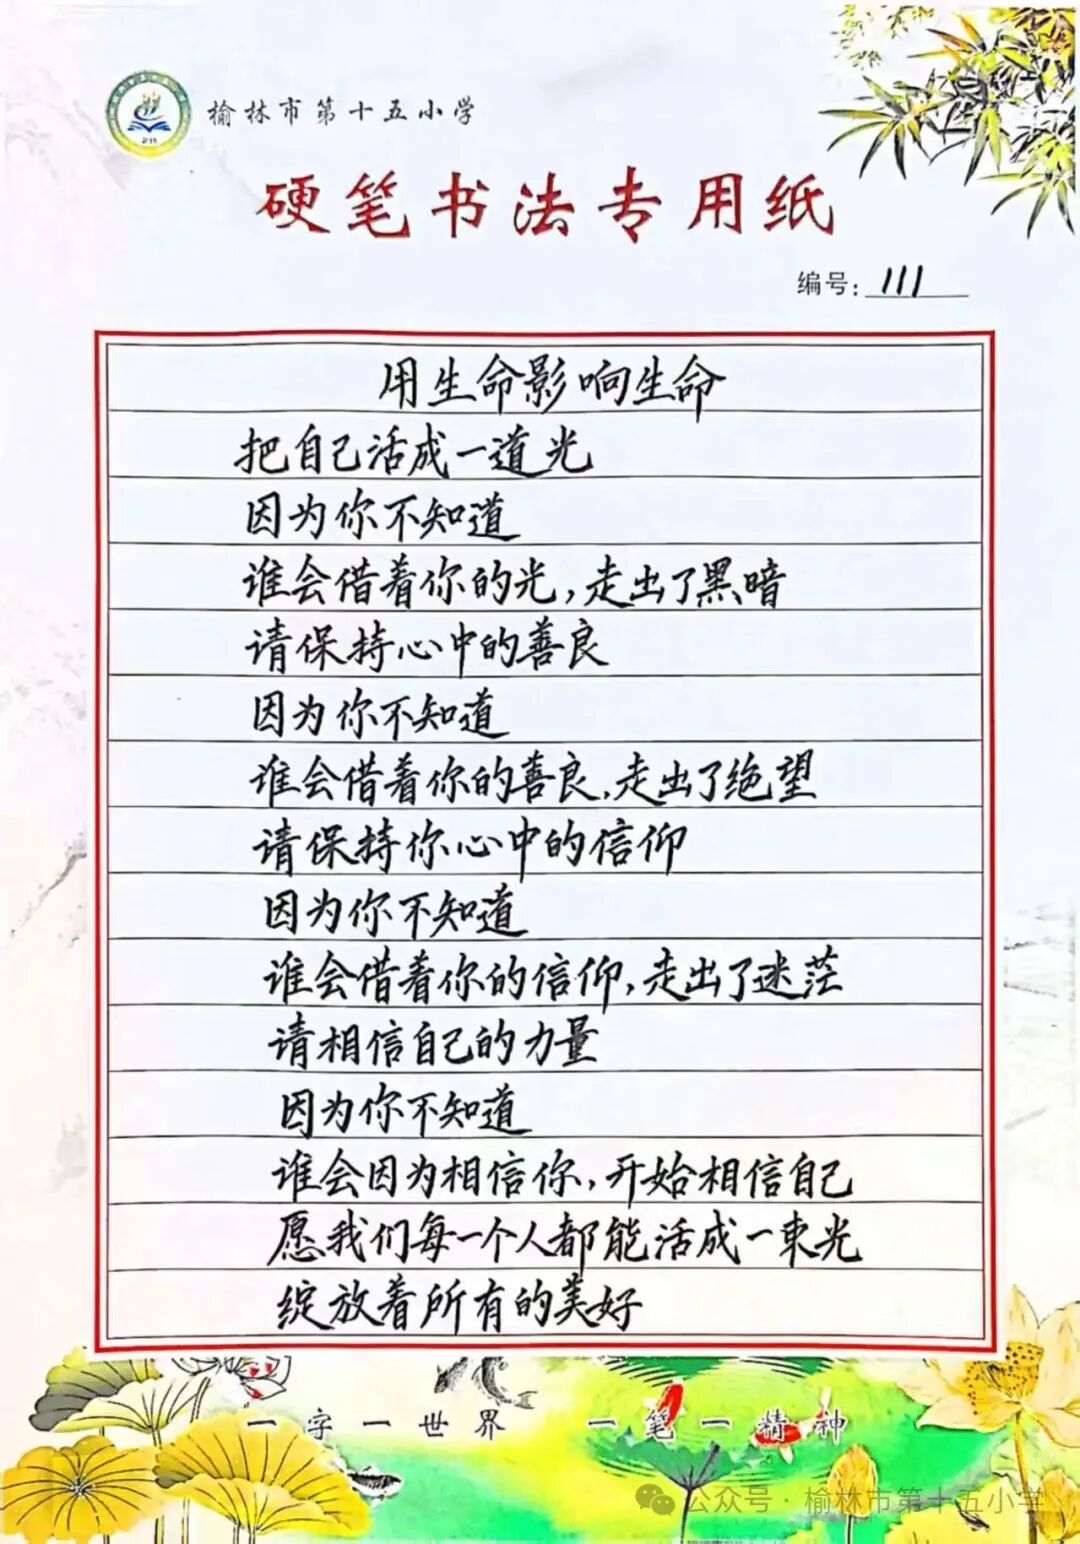 榆林市第十五小学
硬笔书法专用纸
编号：111
用生命影响生命
把自己活成一道光
因为你不知道
谁会借着你的光,走出了黑暗
请保持心中的善良
因为你不知道
谁会借着你的善良,走出了绝望
请保持你心中的信仰
因为你不知道
谁会借着你的信仰,走出了迷茫
请相信自己的力量
因为你不知道
谁会因为相信你,开始相信自己
愿我们每一个人都能活成一束光
绽放着所有的美好
一字一世界 一笔一精神
公众号·榆林市第十五小学